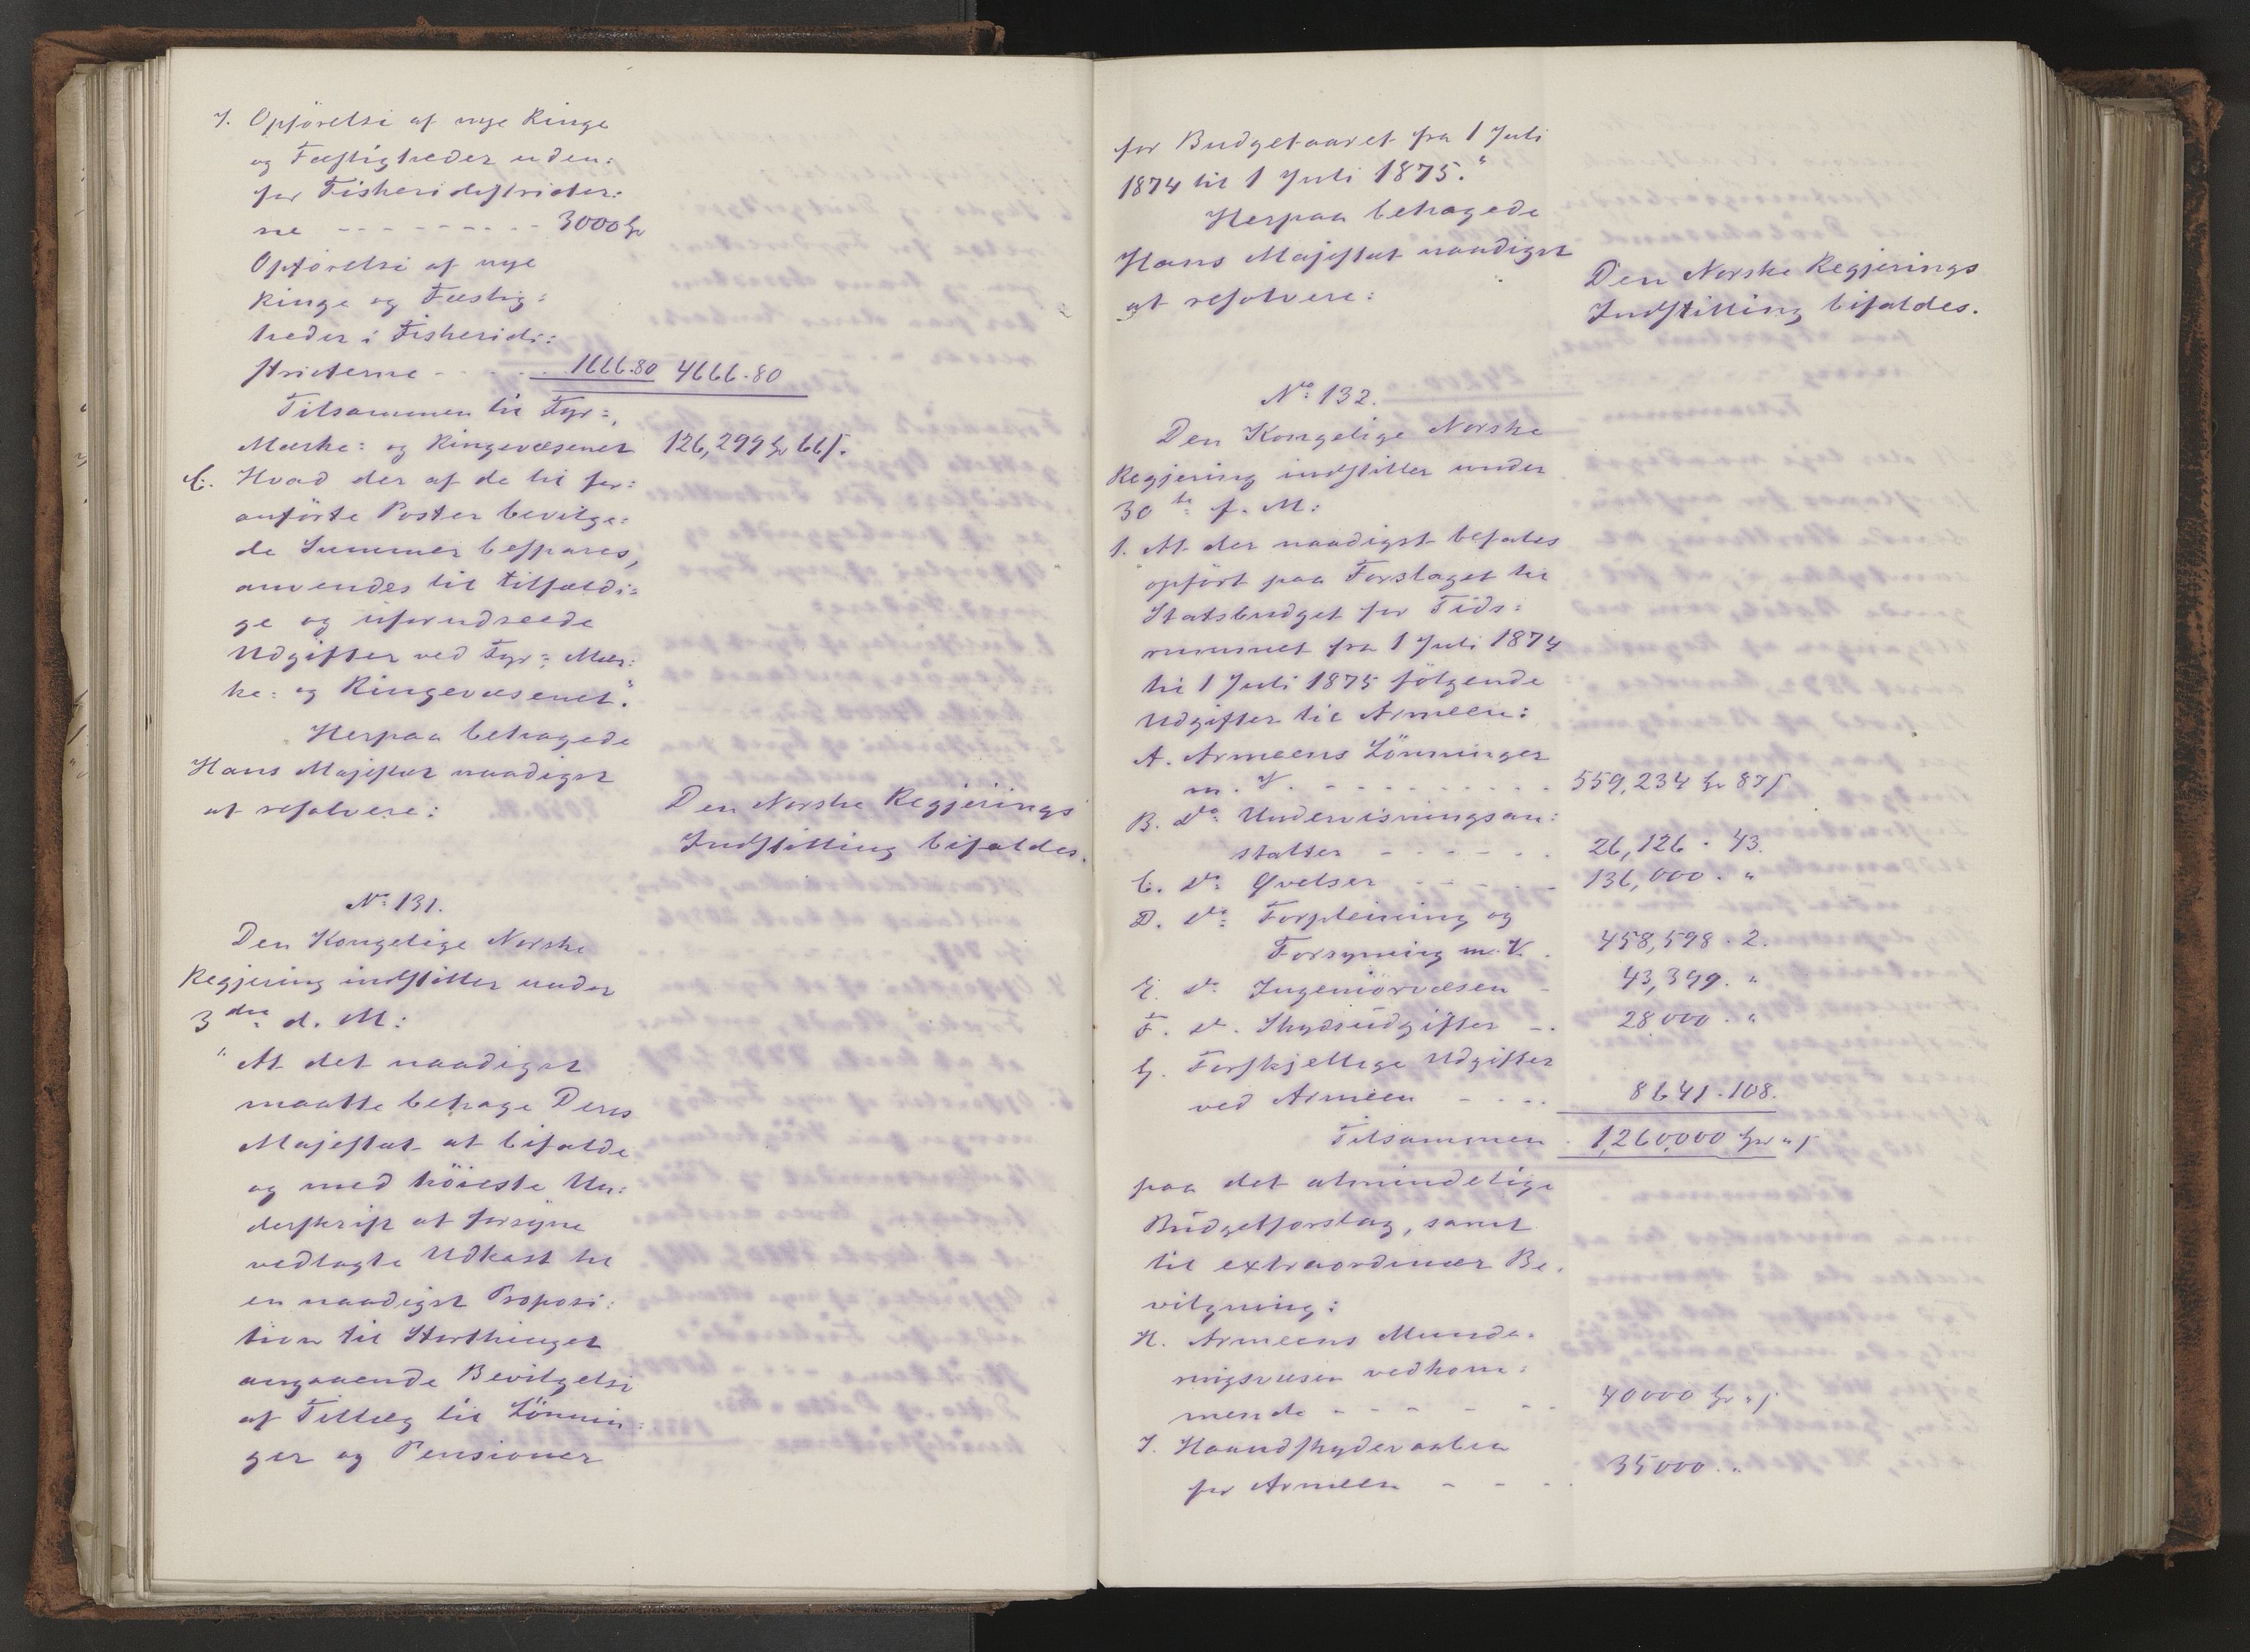 7. Opførelse af nye Ringe
og Fæstigheder uden:
for Fiskeridistricter:
ne - - - - - - - - - 3000 Spd
Opførelse af nye
Ringe og Fæstig:
heder i Fiskeridi:
stricterne - - - - - 1666.80 4666.80
Tilsammen til Fyr=,
Mærke: og Ringevæsenet 126,299 Spd 66 s.
C. Hvad der af de til for:
anførte Poster bevilge:
de Summer bespares,
anvendes til tilfældi=
ge og uforudseede
Udgifter ved Fyr=, Mær:
ke: og Ringevæsenet."
Herpaa behagede
Hans Majestæt naadigst
at resolvere:
Den Norske Regjerings
Indstilling bifaldes.
No 131.
Den Kongelige Norske
Regjering indstiller under
3die d. M:
"At det naadigst
maatte behage Deres
Majestæt at bifalde
og med höieste Un:
derskrift at forsyne
vedlagte Udkast til
en naadigst Proposi:
tion til Storthinget
angaaende Bevilgelse
af Tillæg til Lönnin:
ger og Pensioner
for Budgetaaret fra 1 Juli
1874 til 1 Juli 1875."
Herpaa behagede
Hans Majestæt naadigst
at resolvere:
Den Norske Regjerings
Indstilling bifaldes.
No 132.
Den Kongelige Norske
Regjering indstiller under
30te f. M:
1. At der naadigst befales
opført paa Forslaget til
Statsbudget for Tids:
rummet fra 1 Juli 1874
til 1 Juli 1875 følgende
Udgifter til Armeen:
A. Armeens Lönninger
m. V. - - - - - - - - 559,234 Spd 87 s
B. Do Undervisningsan:
stalter - - - - - - 26,126 . 43.
C. Do Øvelser - - - - - 136,000 . "
D. Do Forpleining og
Forsyning m. V. . 458,598 . 2.
E. Do Ingeniörvæsen - 43,399. "
F. Do. Skydsudgifter - . 28,000 . "
G. Forskjellige Udgifter
ved Armeen - - - . 8641 . 108.
Tilsammen . 1,260,000 Spd " s
paa det almindelige
Budgetforslag, samt
til extraordinær Be.
vilgning:
H. Armeens Munde.
ringsvæsen vedkom:
mende - - - - - - 40000 Spd " s
I. Haandskydevaaben
for Armeen - - - . 35000 . "